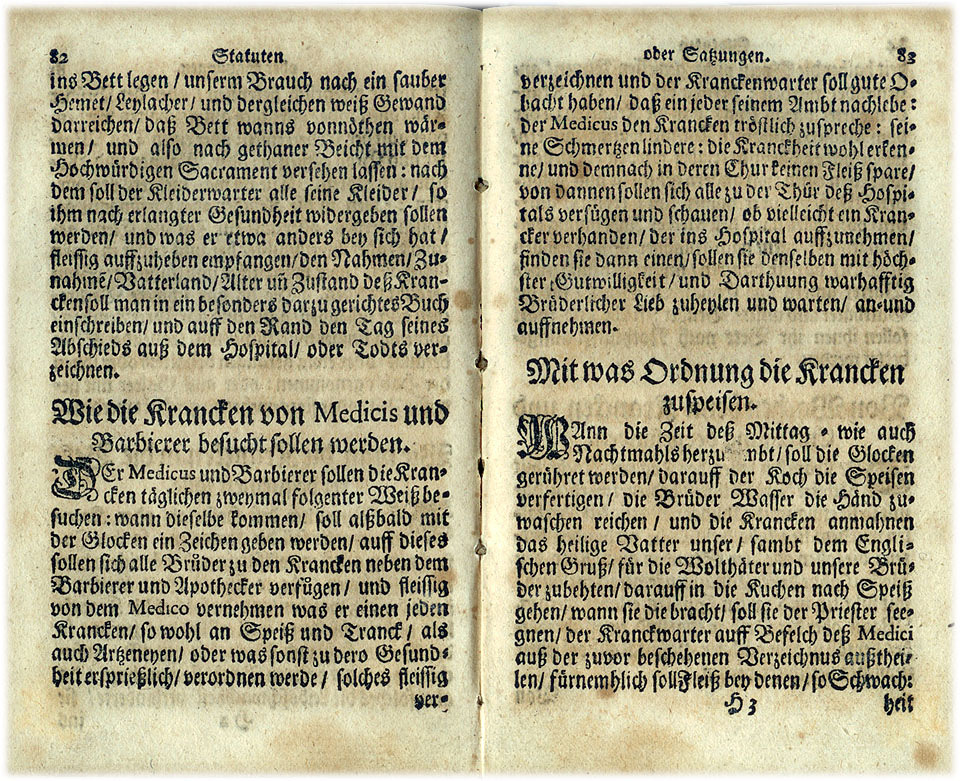 82
Statuten
ins Bett legen / unserm Brauch nach ein sauber
Hemet / Leylacher / und dergleichen weiß Gewand
darreichen / daß Bett wanns vonnöthen wär-
men / und also nach gethaner Beicht mit dem
Hochwürdigen Sacrament versehen lassen: nach
dem soll der Kleiderwarter alle seine Kleider / so
ihm nach erlangter Gesundheit widergeben sollen
werden / und was er etwa anders bey sich hat /
fleissig auffzuheben empfangen / den Nahmen / Zu-
nahmẽ / Vatterland / Alter uñ Zustand deß Kran-
cken soll man in ein besonders darzu gerichtes Buch
einschreiben / und auff den Rand den Tag seines
Abschieds auß dem Hospital / oder Todts ver-
zeichnen.
Wie die Krancken von Medicis und
Barbierer besucht sollen werden.
DEr Medicus und Barbierer sollen die Kran-
cken täglichen zweymal folgenter Weiß be-
suchen: wann dieselbe kommen / soll alßbald mit
der Glocken ein Zeichen geben werden / auff dieses
sollen sich alle Brüder zu den Krancken neben dem
Barbierer und Apothecker verfügen / und fleissig
von dem Medico vernehmen was er einen jeden
Krancken / so wohl an Speiß und Tranck / als
auch Artzeneyen / oder was sonst zu dero Gesund-
heit ersprießlich / verordnen werde / solches fleissig
ver-
oder Satzungen.
83
verzeichnen und der Kranckenwarter soll gute O-
bacht haben / daß ein jeder seinem Ambt nachlebe:
der Medicus den Krancken tröstlich zuspreche: sei-
ne Schmertzen lindere: die Kranckheit wohl erken-
ne / und demnach in deren Chur keinen Fleiß spare /
von dannen sollen sich alle zu der Thür deß Hospi-
tals verfügen und schauen / ob vielleicht ein Kran-
cker verhanden / der ins Hospital auffzunehmen /
finden sie dann einen / sollen sie denselben mit höch-
ster Gutwilligkeit / und Darthuung warhafftig
Brüderlicher Lieb zuheylen und warten / an-und
auffnehmen.
Mit was Ordnung die Krancken
zuspeisen.
WAnn die Zeit deß Mittag- wie auch
Nachtmahls herzu mbt / soll die Glocken
gerühret werden / darauff der Koch die Speisen
verfertigen / die Brüder Wasser die Händ zu-
waschen reichen / und die Krancken anmahnen
das heilige Vatter unser / sambt dem Engli-
schen Gruß / für die Wolthäter und unsere Brü-
der zubehten / darauff in die Kuchen nach Speiß
gehen / wann sie die bracht / soll sie der Priester see-
gnen / der Kranckwarter auff Befelch deß Medici
auß der zuvor beschehenen Verzeichnus außthei-
len / fürnemhlich soll Fleiß bey denen / so Schwach-
H 3
heit